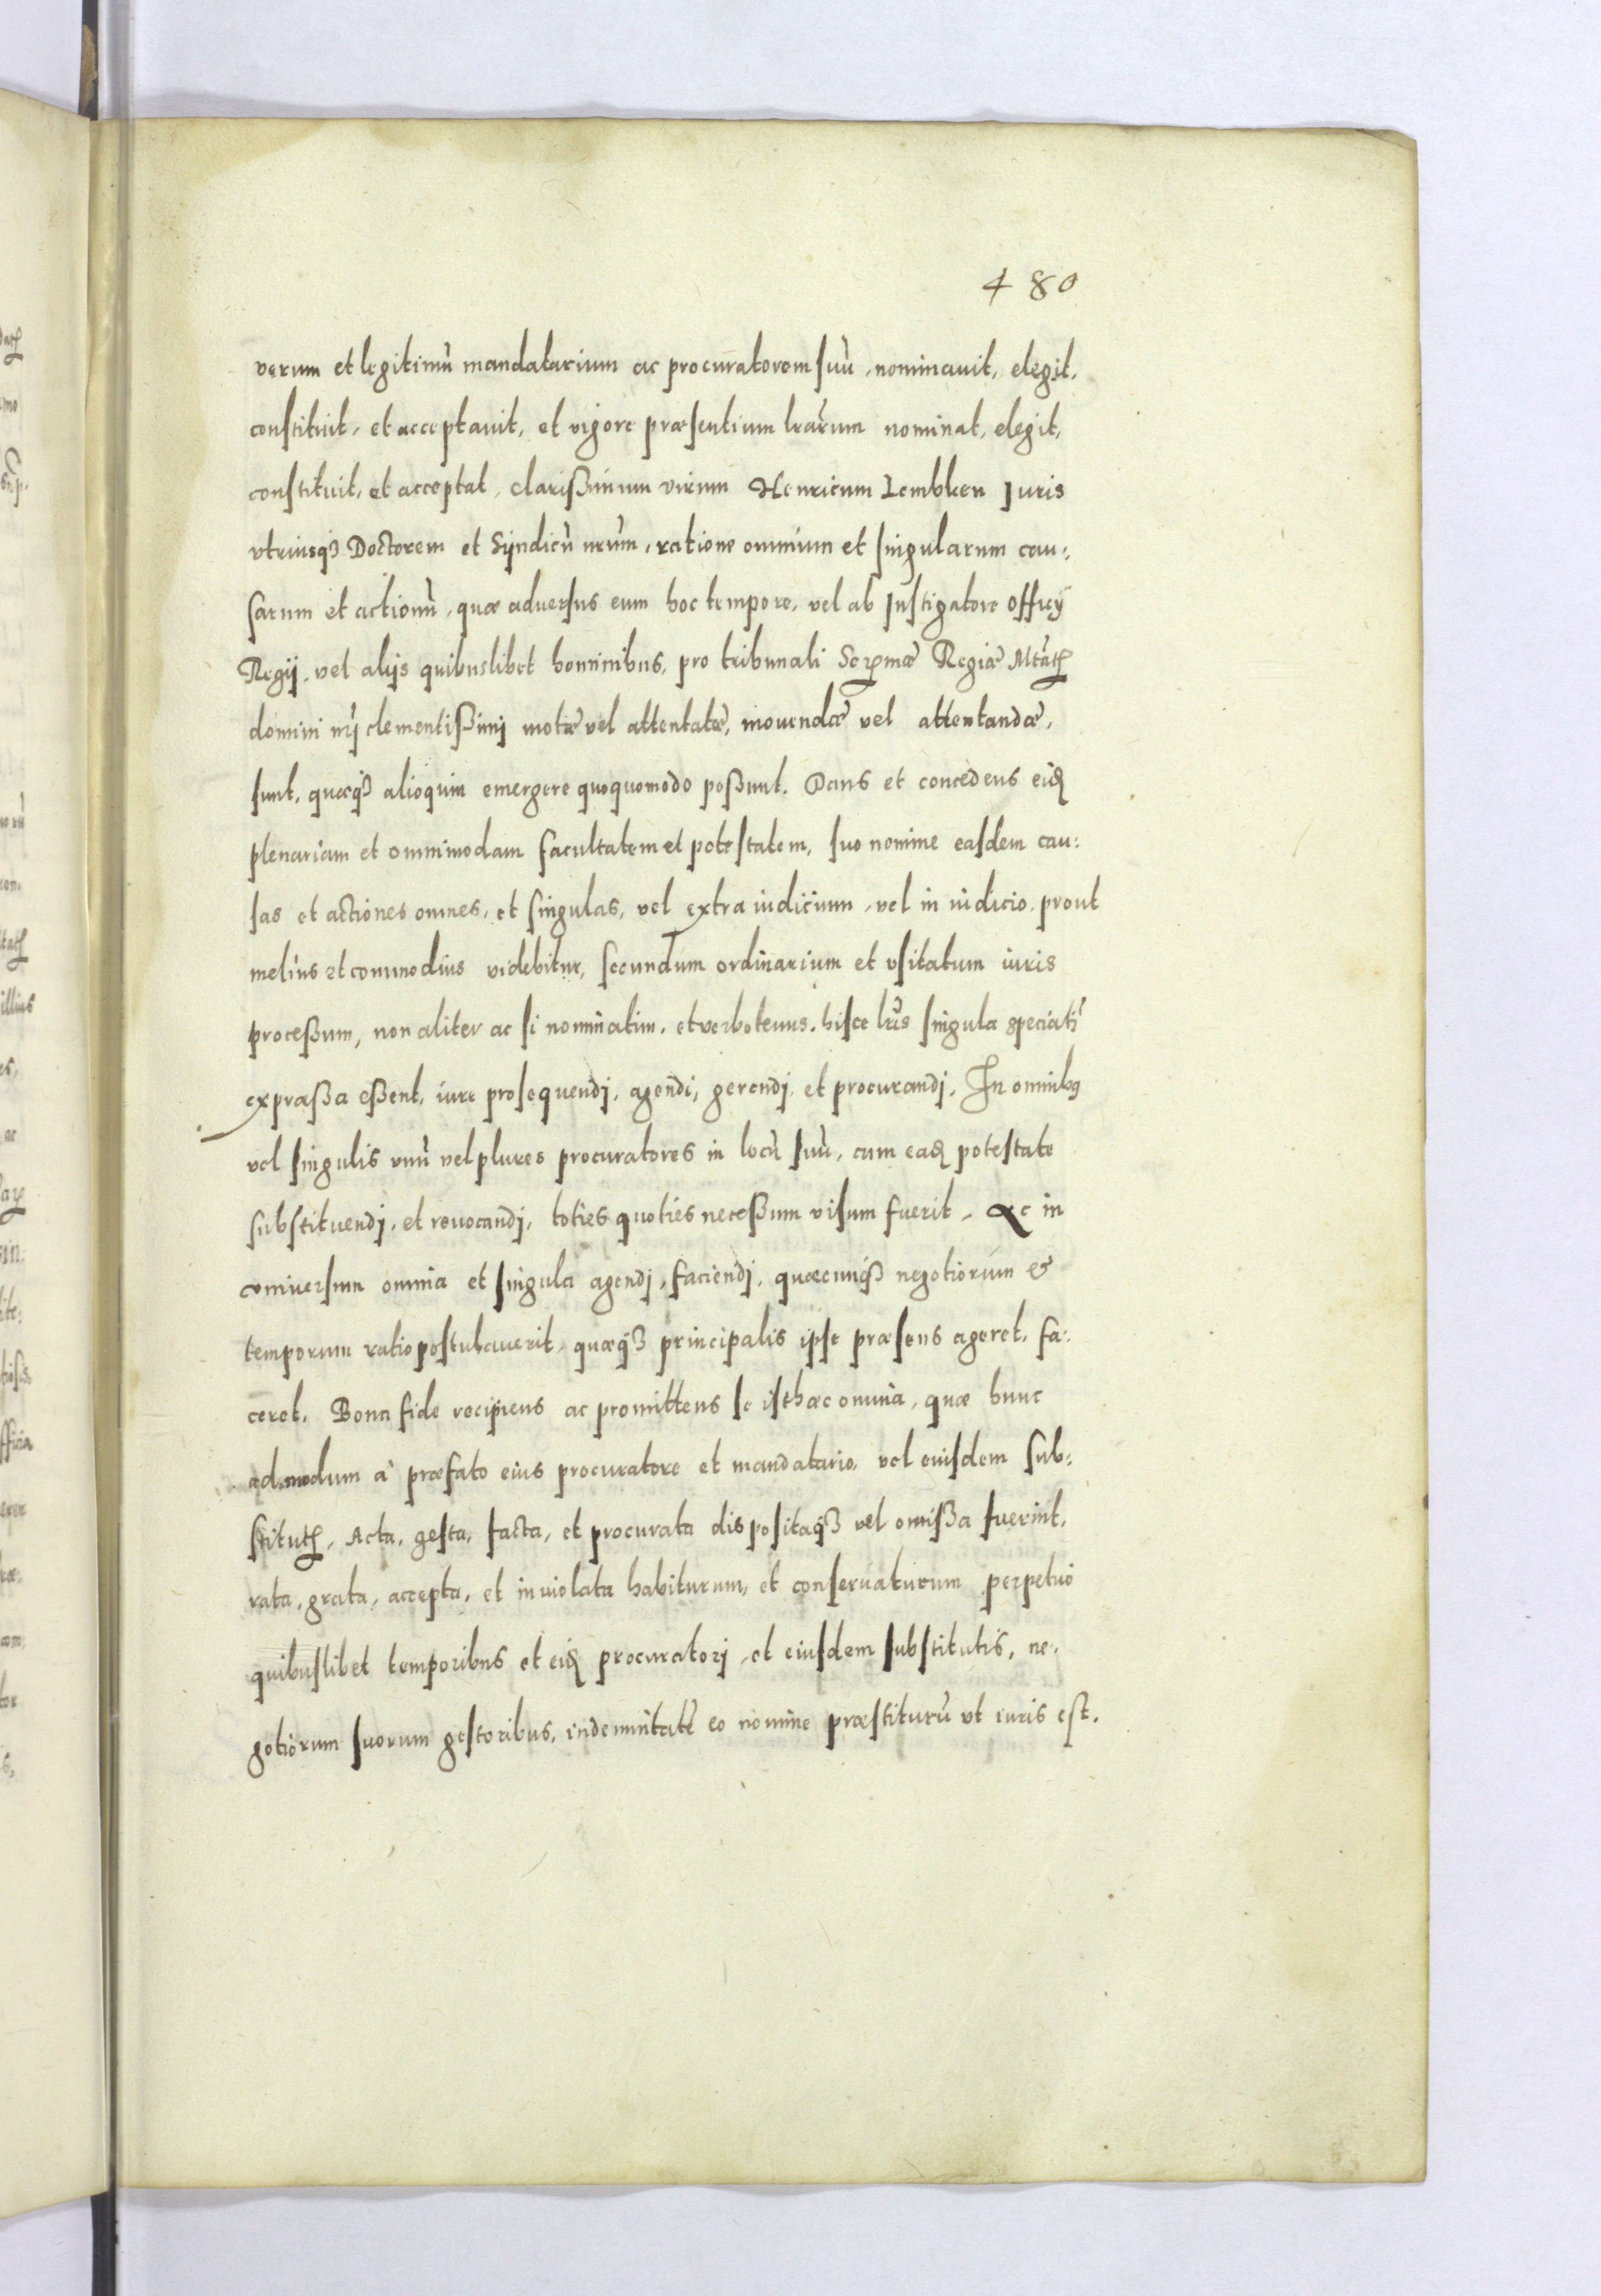 480
verum et legitimū mandatarium ac procuratorem suū, nominauit, elegit,
constituit, et acceptauit, et vigore præsentium lrārum nominat, elegit,
constituit, et acceptat, clarißimum virum Henricum Lembken Juris
vtriusq3 Doctorem et Syndicū nrūm, ratione omnium et singularum cau:
sarum et actionū, quæ aduersus eum hoc tempore, vel ab Instigatore officij
Regij, vel alijs quibuslibet hominibus, pro tribunali Sermæ Regiæ Mtātis
domini nrj clementißimj motæ vel attentatæ, mouendæ vel attentandæ,
sunt, quæq3 alioquin emergere quoquomodo poßunt. Dans et concedens eid
plenariam et omnimodam facultatem et potestatem, suo nomine easdem cau:
sas et actiones omnes, et singulas, vel extra iudicium, vel in iudicio, prout
melius et commodius videbitur, secundum ordinarium et vsitatum iuris
proceßum, non aliter ac si nominatim, et verbotenus, hisce lris singula speciatī
expræßa eßent, iure prosequendj, agendi, gerendj, et procurandj, In omnibus
vel singulis vnū vel plures procuratores in locū suū, cum ead potestate
substituendj, et reuocandj, toties quoties neceßum visum fuerit, Ac in
vniuersum omnia et singula agendj, faciendj, quæcunq3 negotiorum &
temporum ratio postulauerit, quæq3 principalis ipse præsens ageret, fa:
ceret. Bona fide recipiens ac promittens se isthæc omnia, quæ hunc
ad modum à præfato eius procuratore et mandatario, vel euisdem sub:
stitutis, Acta, gesta, facta, et procurata dispositaq3 vel omißa fuerint,
rata, grata, accepta, et inuiolata habiturum, et conseruaturum perpetuò
quibuslibet temporibus et eid procuratorj, et eiusdem substitutis, ne:
gotiorum suorum gestoribus, indemnitatē eo nomine præstiturū vt iuris est.